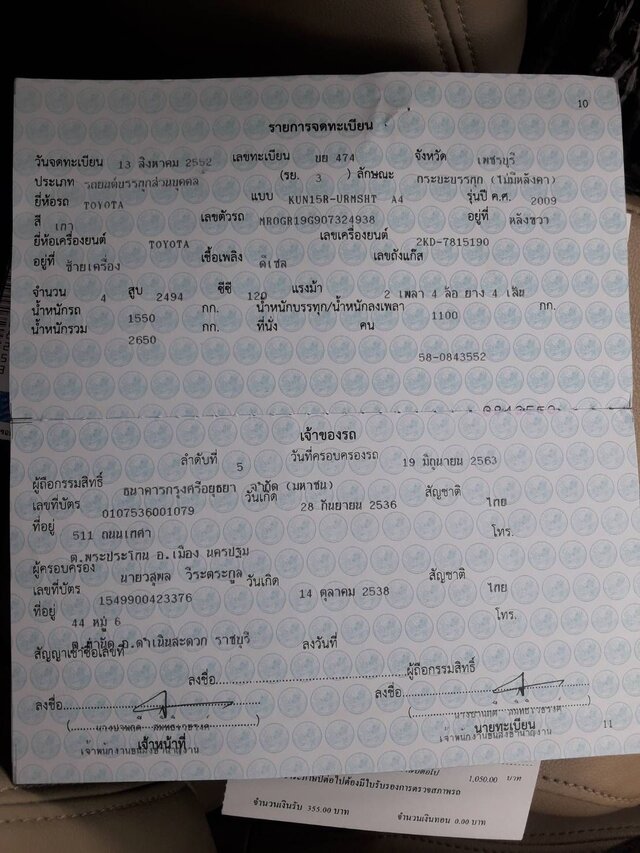 10
รายการจดทะเบียน
วันจดทะเบียน 13 สิงหาคม 2552 เลขทะเบียน บย 474 จังหวัด เพชรบุรี
ประเภท รถยนต์บรรทุกส่วนบุคคล (รย. 3 ) ลักษณะ กระบะบรรทุก (ไม่มีหลังคา)
ยี่ห้อรถ TOYOTA แบบ KUN15R-URMSHT A4 รุ่นปี ค.ศ. 2009
สี เทา เลขตัวรถ MR0GR19G907324938 อยู่ที่ หลังขวา
ยี่ห้อเครื่องยนต์ TOYOTA เลขเครื่องยนต์ 2KD-7815190
อยู่ที่ ซ้ายเครื่อง เชื้อเพลิง ดีเซล เลขถังแก๊ส
จำนวน 4 สูบ 2494 ซีซี 120 แรงม้า 2 เพลา 4 ล้อ ยาง 4 เส้น
น้ำหนักรถ 1550 กก. น้ำหนักบรรทุก/น้ำหนักลงเพลา 1100 กก.
น้ำหนักรวม 2650 กก. ที่นั่ง คน
58-0843552
เจ้าของรถ
ลำดับที่ 5 วันที่ครอบครองรถ 19 มิถุนายน 2563
ผู้ถือกรรมสิทธิ์ ธนาคารกรุงศรีอยุธยา จำกัด (มหาชน)
เลขที่บัตร 0107536001079 วันเกิด 28 กันยายน 2536 สัญชาติ ไทย
ที่อยู่ 511 ถนนเทศา โทร.
ต.พระประโทน อ.เมือง นครปฐม
ผู้ครอบครอง นายวสุพล วีระตระกูล
เลขที่บัตร 1549900423376 วันเกิด 14 ตุลาคม 2538 สัญชาติ ไทย
ที่อยู่ 44 หมู่ 6 โทร.
อ.ดำเนินสะดวก ราชบุรี
สัญญาเช่าซื้อเลขที่ ลงวันที่
ลงชื่อ ผู้ถือกรรมสิทธิ์
ลงชื่อ ลงชื่อ
เจ้าหน้าที่ นายทะเบียน
เจ้าพนักงานขนส่งชำนาญงาน เจ้าพนักงานขนส่งชำนาญงาน
11
1,050.00 บาท
ต้องมีใบรับรองการตรวจสภาพรถ
จำนวนเงินรับ 355.00 บาท จำนวนเงินทอน 0.00 บาท